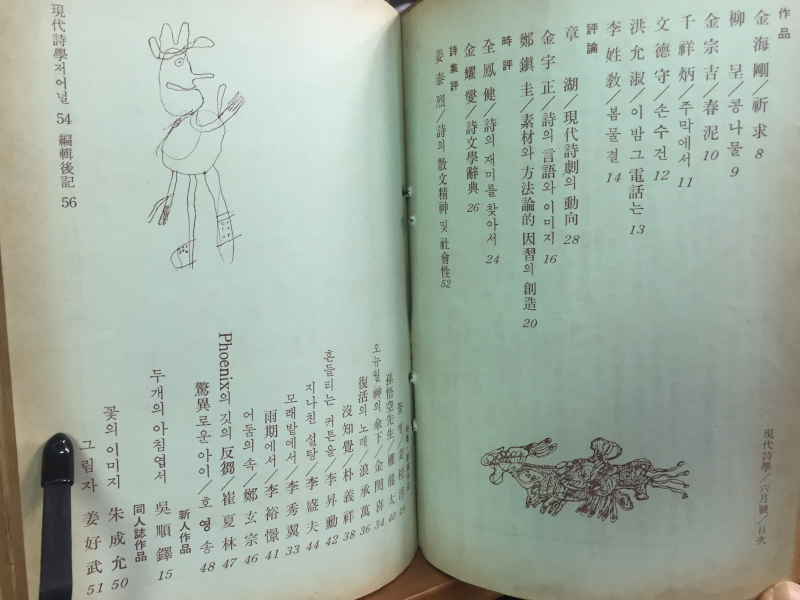 作品
金海剛／祈求 8
柳呈／콩나물 9
金宗吉／春泥 10
千祥炳／주막에서 11
文德守／손수건 12
洪允淑／이밤그電話는 13
李姓敎／봄물결 14
評論
章湖／現代詩劇의 動向 28
金宇正／詩의 言語와 이미지 16
鄭鎭圭／素材와 方法論的 因習의 創造 20
時評
全鳳健／詩의 재미를 찾아서 24
金耀燮／詩文學辭典 26
詩集評
姜泰烈／詩의 散文精神 및 社會性 52
現代詩學／六月號／目次
孫悟空先生／權龍太 40
오뉴월 神의 傘下／金閏喜 34
復活의 노래／浪承萬 36
沒知覺／朴義祥 38
흔들리는 커튼을／李昇勳 42
지나친 설탕／李盛夫 44
모래밭에서／李秀翼 33
雨期에서／李裕憬 41
어둠의 속／鄭玄宗 46
Phoenix의 깃의 反響／崔夏林 47
驚異로운 아이／호영송 48
新人作品
두개의 아침엽서 吳順鐸 15
同人誌作品
꽃의 이미지 朱成允 50
그림자 姜好武 51
現代詩學저어널 54 編輯後記 56